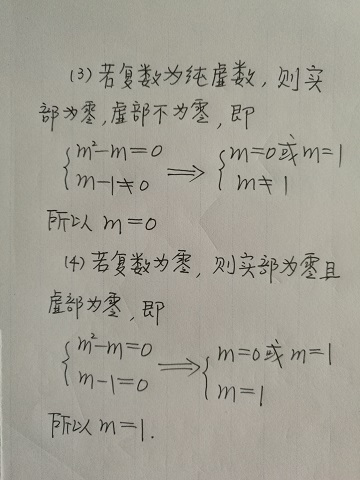 (3)若复数为纯虚数，则实
部为零，虚部不为零，即
{m²-m=0 ⟹ {m=0或m=1
{m-1≠0 {m≠1
所以 m=0
(4)若复数为零，则实部为零且
虚部为零，即
{m²-m=0 ⟹ {m=0或m=1
{m-1=0 {m=1
所以 m=1.